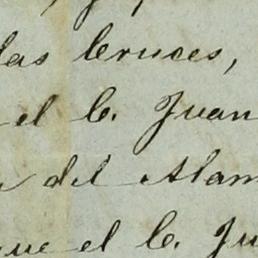 las Cruces,
el C. Juan
del Alam
que el C. Ju